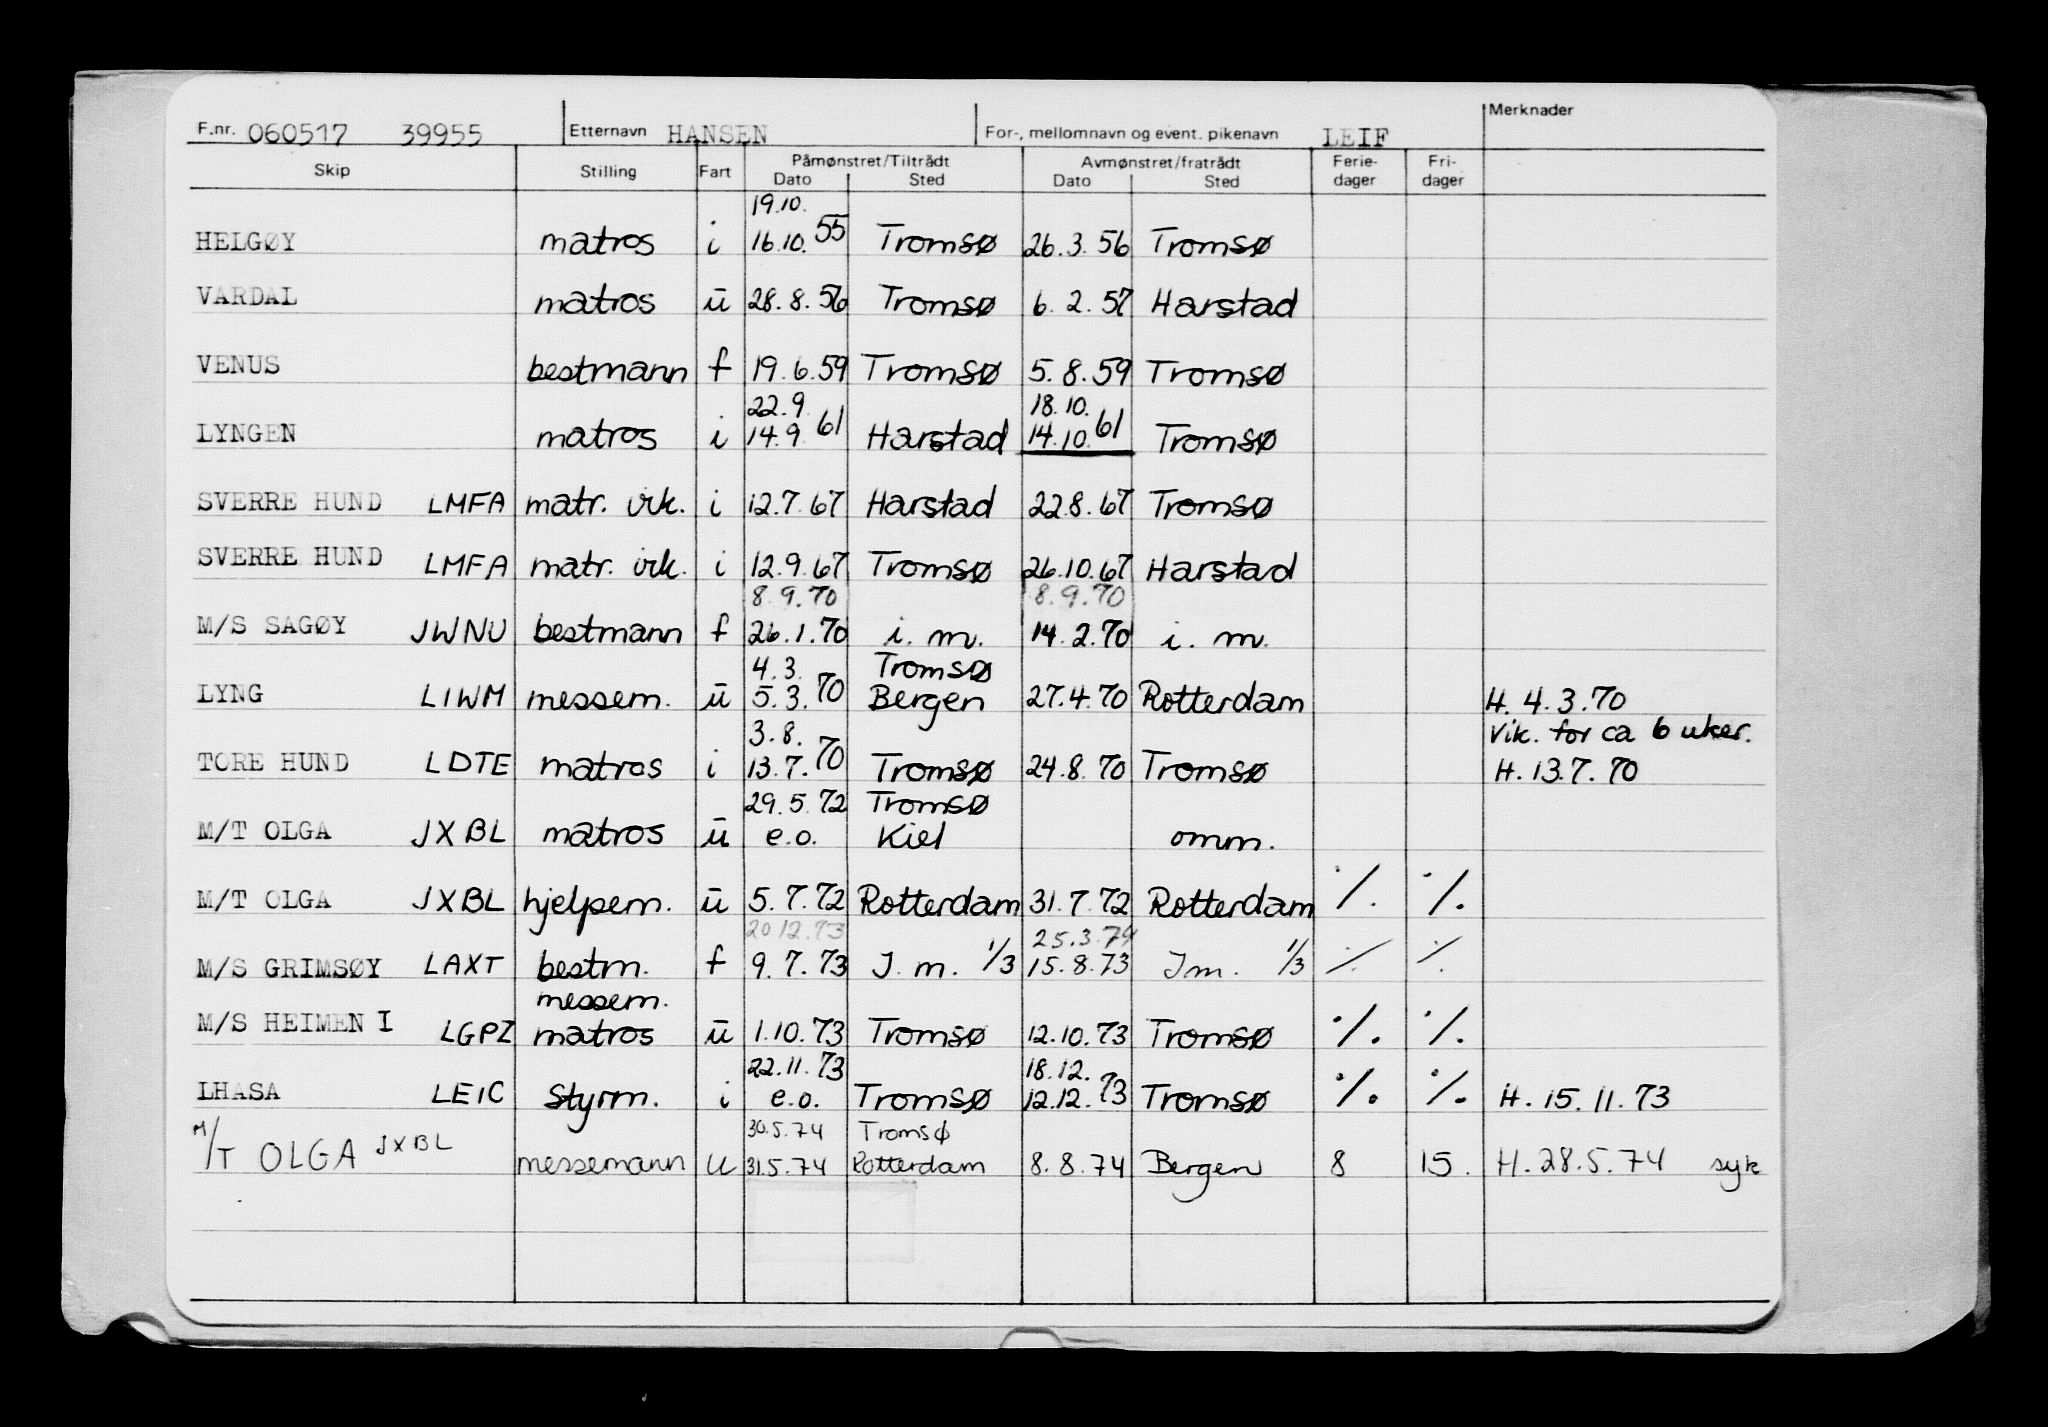 F.nr. 060517 39955 Etternavn HANSEN For-, mellomnavn og event. pikenavn LEIF Merknader
Skip Stilling Fart Påmønstret/Tiltrådt Avmønstret/fratrådt Ferie- Fri-
Dato Sted Dato Sted dager dager
19.10.
HELGØY matros i 16.10. 55 Tromsø 26.3.56 Tromsø
VARDAL matros u 28.8.56 Tromsø 6.2.57 Harstad
VENUS bestmann f 19.6.59 Tromsø 5.8.59 Tromsø
22.9 18.10.
LYNGEN matros i 14.9 61 Harstad 14.10. 61 Tromsø
SVERRE HUND LMFA matr. vik. i 12.7.67 Harstad 22.8.67 Tromsø
SVERRE HUND LMFA matr. vik. i 12.9.67 Tromsø 26.10.67 Harstad
8.9.70 8.9.70
M/S SAGØY JWNU bestmann f 26.1.70 i.m. 14.2.70 i.m.
4.3. Tromsø
LYNG LIWM messem. u 5.3.70 Bergen 27.4.70 Rotterdam H. 4.3.70
3.8. Vik. for ca 6 uker.
TORE HUND LDTE matros i 13.7.70 Tromsø 24.8.70 Tromsø H. 13.7.70
29.5.72 Tromsø
M/T OLGA JXBL matros u e.o. Kiel omm.
M/T OLGA JXBL hjelpem. u 5.7.72 Rotterdam 31.7.72 Rotterdam ·/. ·/.
20.12.73 25.3.74
M/S GRIMSØY LAXT bestm. f 9.7.73 I.m. 1/3 15.8.73 Im. 1/3 ·/. ·/.
messem.
M/S HEIMEN I LGPZ matros u 1.10.73 Tromsø 12.10.73 Tromsø ·/. ·/.
22.11.73 18.12.
LHASA LEIC Styrm. i e.o. Tromsø 12.12.73 Tromsø ·/. ·/. H. 15.11.73
30.5.74 Tromsø
M/T OLGA JXBL messemann u 31.5.74 Rotterdam 8.8.74 Bergen 8 15. H. 28.5.74 syk